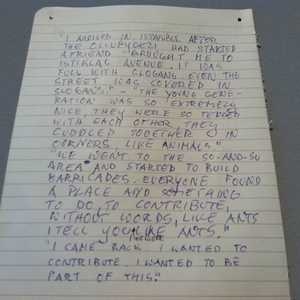 "I ARRIVED IN ISTANBUL AFTER
THE HAD STARTED
A FRIEND BROUGHT ME TO
ISTIKLAL AVENUE. IT WAS
FULL WITH SLOGANS. EVEN THE
STREET WAS COVERED IN
SLOGANS." - "THE YOUNG GENE-
RATION WAS SO EXTREMELY
NICE, THEY WERE SO TENDER
WITH EACH OTHER, THEY
CUDDLED TOGETHER IN
CORNERS, LIKE ANIMALS."
"WE WENT TO THE SO-AND-SO
AREA AND STARTED TO BUILD
BARRICADES. EVERYONE FOUND
A PLACE AND SOMETHING
TO DO, TO CONTRIBUTE,
WITHOUT WORDS, LIKE ANTS
I TELL YOU, LIKE ANTS."
"I CAME BACK BECAUSE I WANTED TO
CONTRIBUTE. I WANTED TO BE
PART OF THIS."